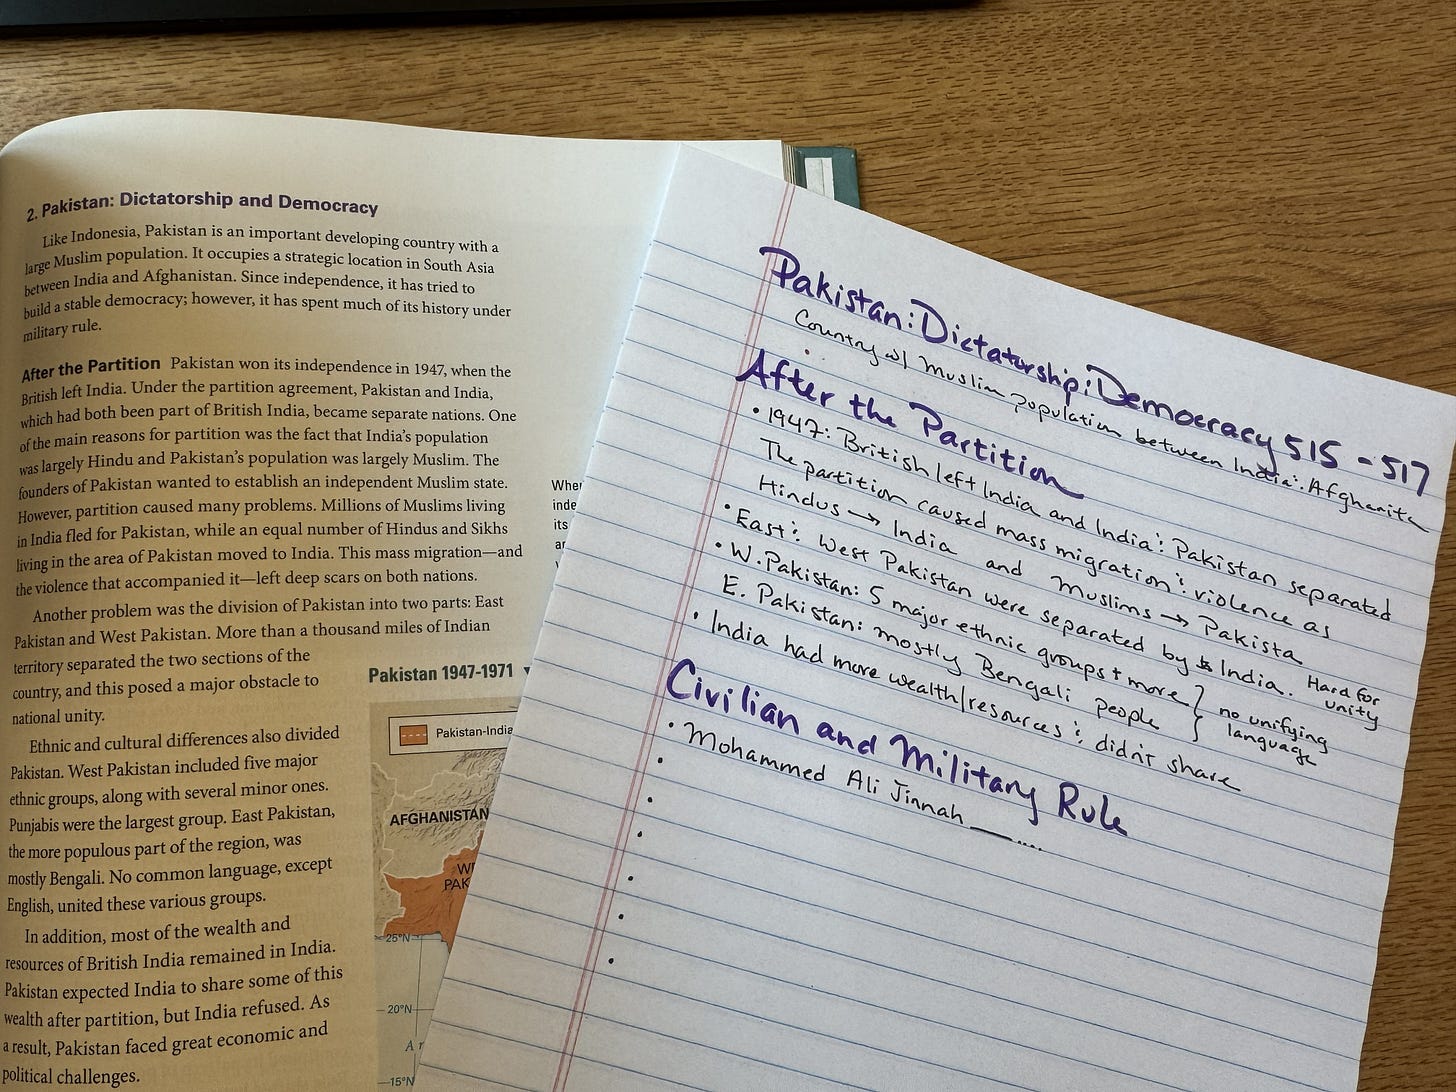 2. Pakistan: Dictatorship and Democracy
Like Indonesia, Pakistan is an important developing country with a
large Muslim population. It occupies a strategic location in South Asia
between India and Afghanistan. Since independence, it has tried to
build a stable democracy; however, it has spent much of its history under
military rule.
After the Partition Pakistan won its independence in 1947, when the
British left India. Under the partition agreement, Pakistan and India,
which had both been part of British India, became separate nations. One
of the main reasons for partition was the fact that India's population
was largely Hindu and Pakistan's population was largely Muslim. The
founders of Pakistan wanted to establish an independent Muslim state.
However, partition caused many problems. Millions of Muslims living
in India fled for Pakistan, while an equal number of Hindus and Sikhs
living in the area of Pakistan moved to India. This mass migration—and
the violence that accompanied it—left deep scars on both nations.
Another problem was the division of Pakistan into two parts: East
Pakistan and West Pakistan. More than a thousand miles of Indian
territory separated the two sections of the
country, and this posed a major obstacle to
national unity.
Ethnic and cultural differences also divided
Pakistan. West Pakistan included five major
ethnic groups, along with several minor ones.
Punjabis were the largest group. East Pakistan,
the more populous part of the region, was
mostly Bengali. No common language, except
English, united these various groups.
In addition, most of the wealth and
resources of British India remained in India.
Pakistan expected India to share some of this
wealth after partition, but India refused. As
a result, Pakistan faced great economic and
political challenges.
Pakistan 1947-1971
Pakistan-India
AFGHANISTAN
25°N
20°N
15°N
its
Pakistan: Dictatorship: Democracy 515 - 517
Country w/ Muslim population between India : Afghanita
After the Partition
• 1947: British left India and India : Pakistan separated
The partition caused mass migration : violence as
Hindus → India and Muslims → Pakista
• East : West Pakistan were separated by India. Hard for
unity
• W. Pakistan: 5 major ethnic groups + more
E. Pakistan: mostly Bengali people
no unifying
language
• India had more wealth/resources : didn't share
Civilian and Military Rule
• Mohammed Ali Jinnah